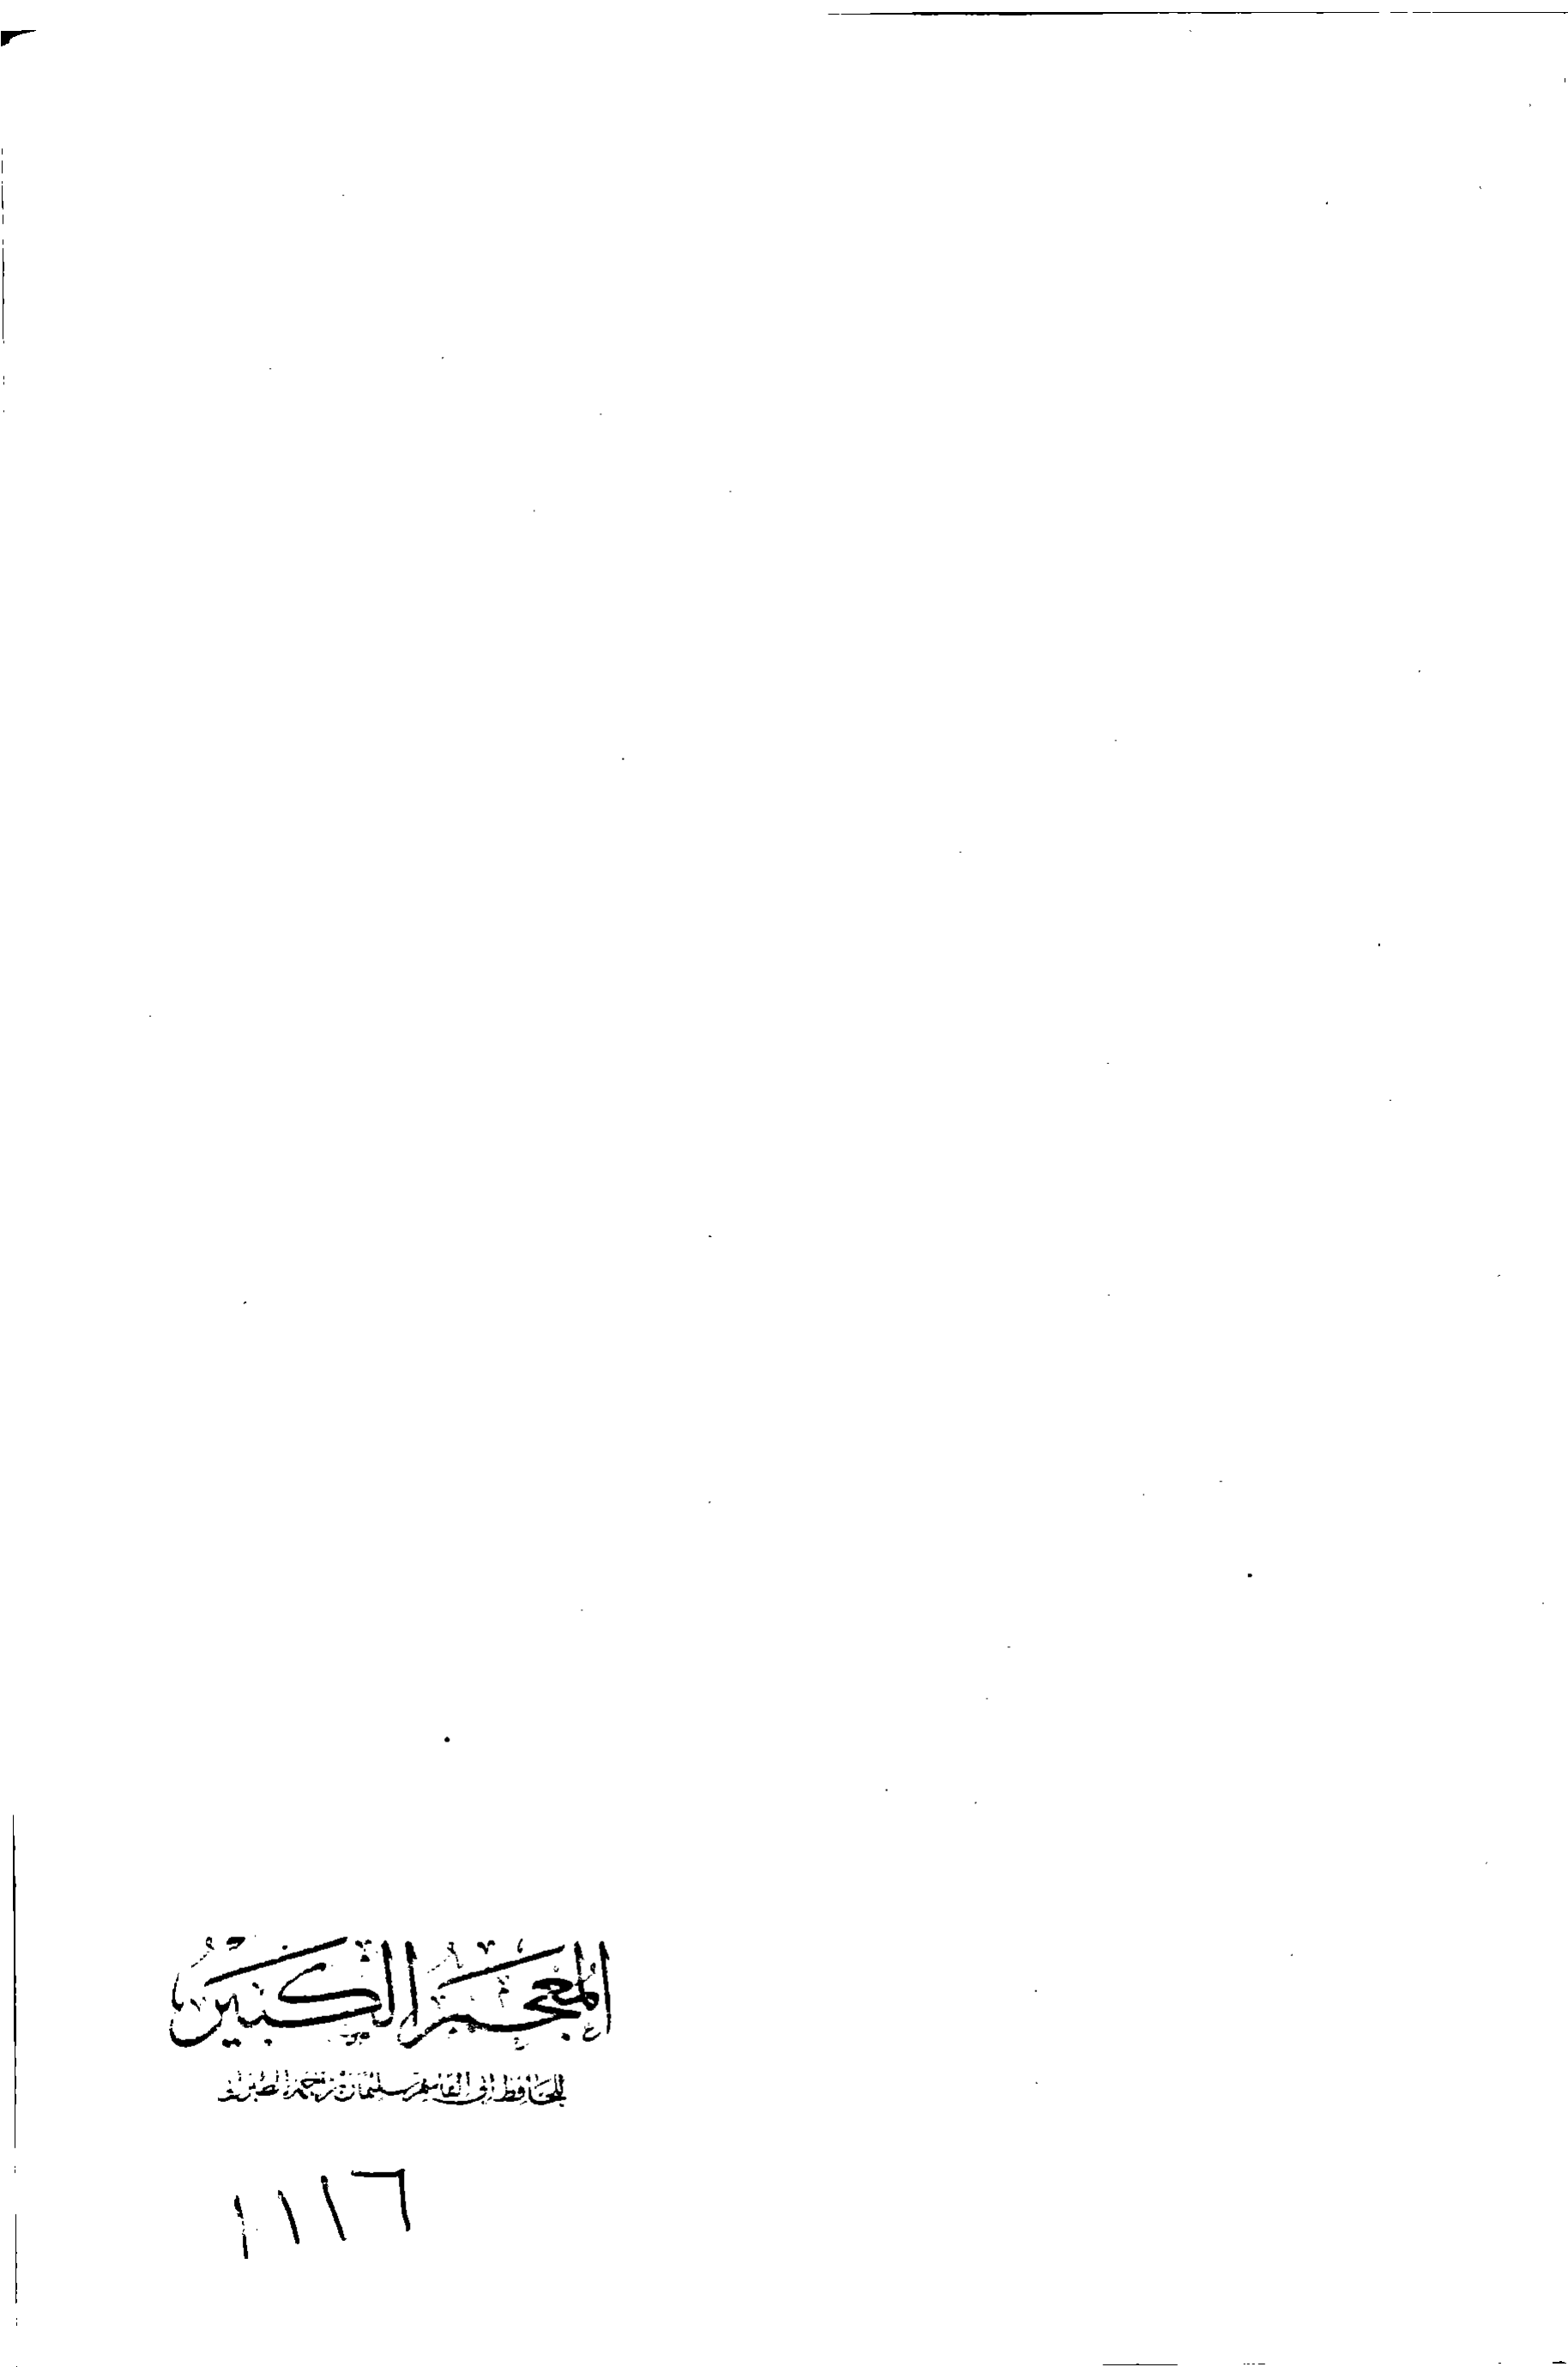 المعجم الكبير
للحافظ أبي القاسم سليمان بن أحمد الطبراني
١١١٦